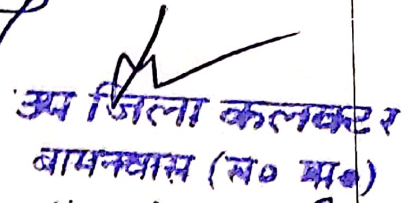 उप जिला कलक्टर
बामनवास (स० मा०)